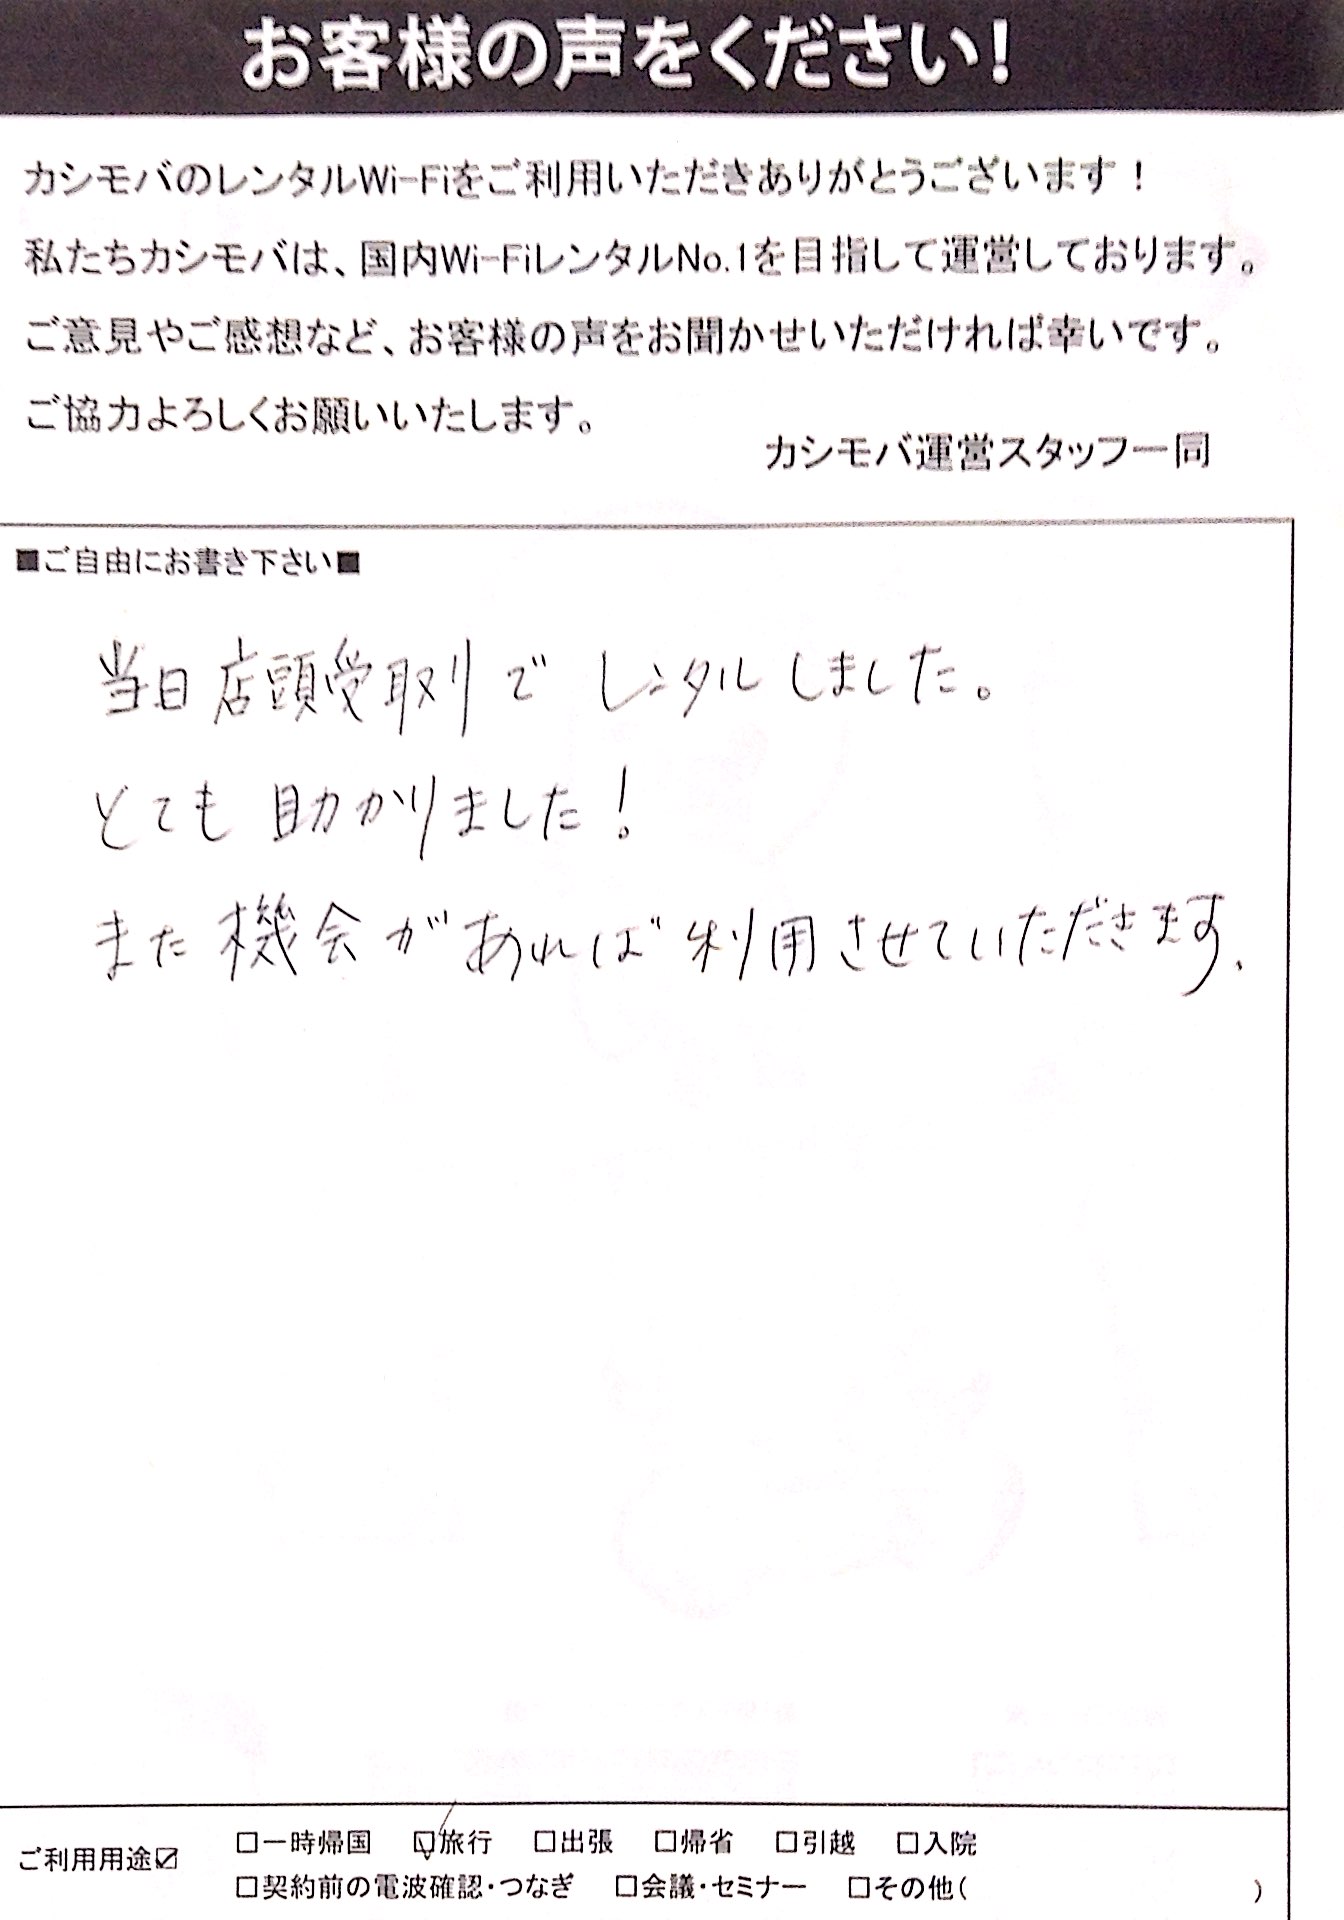 お客様の声をください!
カシモバのレンタルWi-Fiをご利用いただきありがとうございます！
私たちカシモバは、国内Wi-FiレンタルNo.1を目指して運営しております。
ご意見やご感想など、お客様の声をお聞かせいただければ幸いです。
ご協力よろしくお願いいたします。
カシモバ運営スタッフ一同
■ご自由にお書き下さい■
当日店頭受取りでレンタルしました。
とても助かりました!
また機会があれば利用させていただきます、
ご利用用途☑ □一時帰国 ☑旅行 □出張 □帰省 □引越 □入院
□契約前の電波確認・つなぎ □会議・セミナー □その他( )